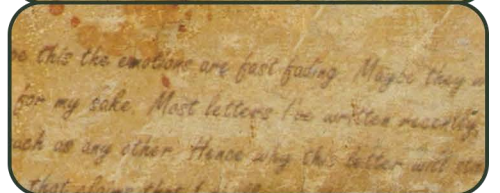 this the emotions are fast fading. Maybe they
for my sake. Most letters I've written recently,
as any other. Hence why this letter will
that claims that I